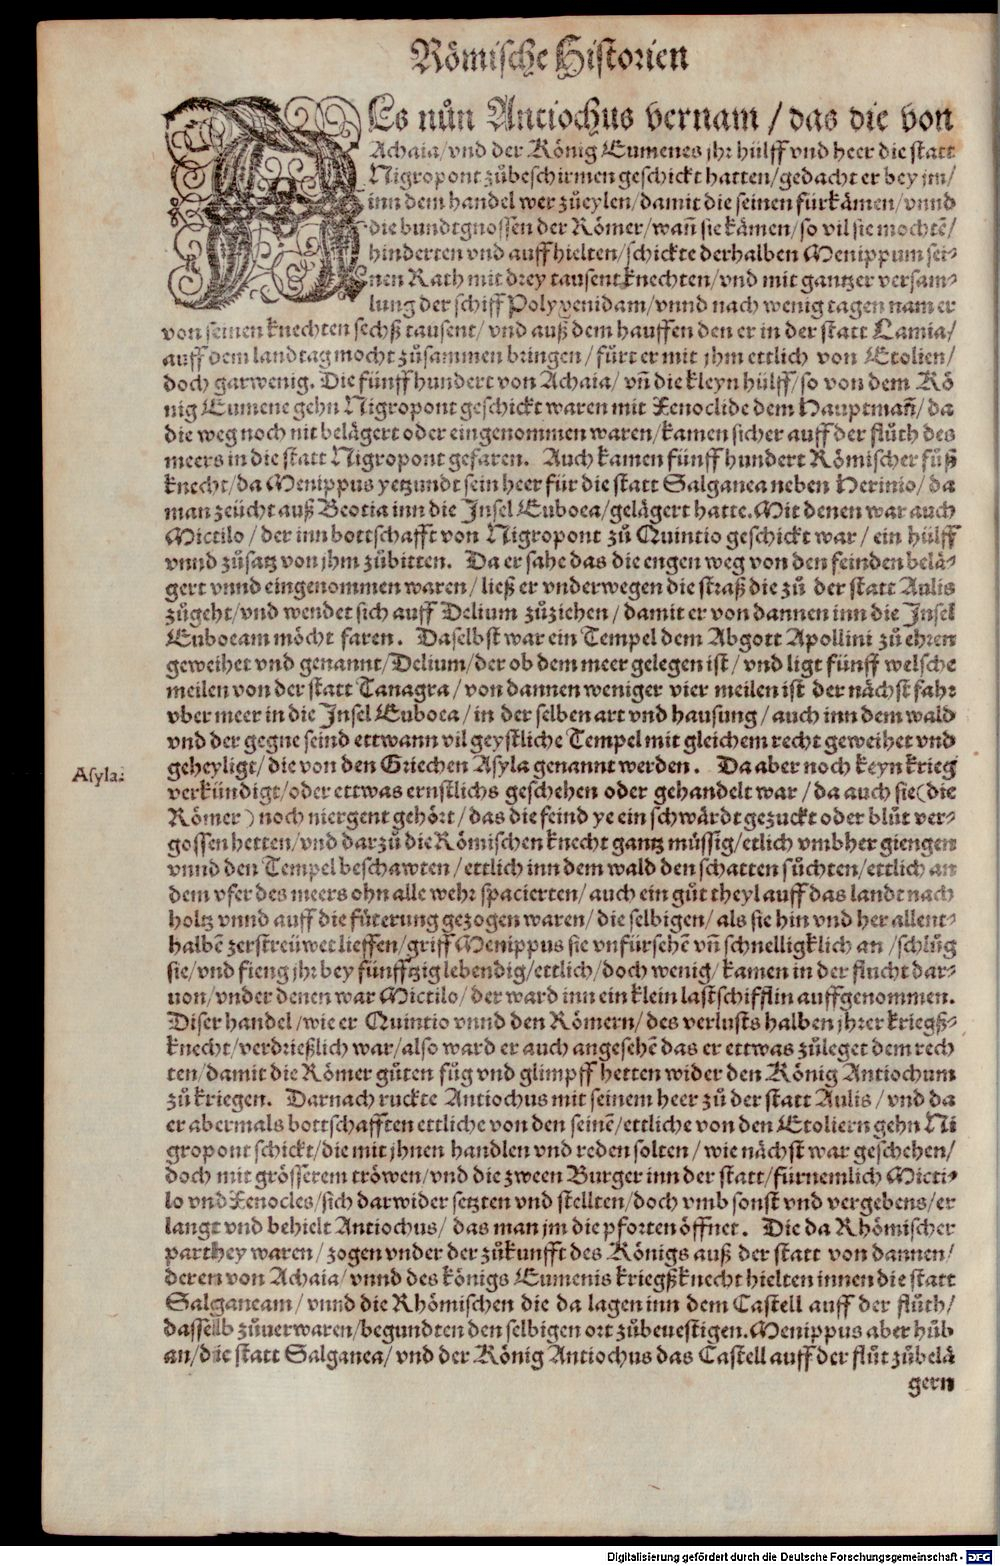 Römische Historien
ALs nůn Antiochus vernam / das die von
Achaia/vnd der König Eumenes jhr hülff vnd heer die statt
Nigropont zůbeschirmen geschickt hatten/gedacht er bey jm/
inn dem handel wer zůeylen/damit die seinen fürkämen/vnnd
die bundtgnossen der Römer/wañ sie kämen/so vil sie mochtẽ/
hinderten vnd auffhielten/schickte derhalben Menippum sei-
nen Rath mit drey tausent knechten/vnd mit gantzer versam-
lung der schiff Polyxenidam/vnnd nach wenig tagen nam er
von seinen knechten sechß tausent/ vnd auß dem hauffen den er in der statt Lamia/
auff dem landtag mocht zůsammen bringen/ fürt er mit jhm ettlich von Etolien/
doch gar wenig. Die fünff hundert von Achaia/ vñ die kleyn hülff/so von dem Kö
nig Eumene gehn Nigropont geschickt waren mit Xenoclide dem Hauptmañ/ da
die weg noch nit belägert oder eingenommen waren/kamen sicher auff der flůth des
meers in die statt Nigropont gefaren. Auch kamen fünff hundert Römischer fůß
knecht/da Menippus yetzundt sein heer für die statt Salganea neben Herinio/ da
man zeücht auß Beotia inn die Insel Euboea/gelägert hatte. Mit denen war auch
Mictilo / der inn bottschafft von Nigropont zů Quintio geschickt war/ ein hülff
vnnd zůsatz von jhm zůbitten. Da er sahe das die engen weg von den feinden belä-
gert vnnd eingenommen waren/ ließ er vnderwegen die straß die zů der statt Aulis
zůgeht/vnd wendet sich auff Delium zůziehen / damit er von dannen inn die Insel
Euboeam möcht faren. Daselbst war ein Tempel dem Abgott Apollini zů ehren
geweihet vnd genannt/Delium/der ob dem meer gelegen ist/ vnd ligt fünff welsche
meilen von der statt Tanagra/ von dannen weniger vier meilen ist der nächst fahr
vber meer in die Insel Euboea/ in der selben art vnd hausung/ auch inn dem wald
vnd der gegne seind ettwann vil geystliche Tempel mit gleichem recht geweihet vnd
geheyligt/ die von den Griechen Asyla genannt werden. Da aber noch keyn krieg
Asyla.
verkündigt/oder ettwas ernstlichs geschehen oder gehandelt war / da auch sie (die
Römer) noch niergent gehört/ das die feind ye ein schwärdt gezuckt oder blůt ver-
gossen hetten/vnd darzů die Römischen knecht gantz müssig/etlich vmbher giengen
vnnd den Tempel beschawten/ ettlich inn dem wald den schatten sůchten/ettlich an
dem vfer des meers ohn alle wehr spacierten/ auch ein gůt theyl auff das landt nach
holtz vnnd auff die fůterung gezogen waren/ die selbigen/ als sie hin vnd her allent-
halbẽ zerstreüwet lieffen/griff Menippus sie vnfürsehẽ vñ schnelligklich an /schlůg
sie/vnd fieng jhr bey fünfftzig lebendig/ettlich/doch wenig/ kamen in der flucht dar-
uon/vnder denen war Mictilo/ der ward inn ein klein lastschifflin auffgenommen.
Diser handel/wie er Quintio vnnd den Römern/ des verlusts halben jhrer kriegß-
knecht/verdrießlich war/also ward er auch angesehẽ das er ettwas zůleget dem rech
ten/damit die Römer gůten fůg vnd glimpff hetten wider den König Antiochum
zů kriegen. Darnach ruckte Antiochus mit seinem heer zů der statt Aulis/ vnd da
er abermals bottschafften ettliche von den seinẽ/ettliche von den Etoliern gehn Ni
gropont schickt/die mit jhnen handlen vnd reden solten/ wie nächst war geschehen/
doch mit grösserem tröwen/vnd die zween Burger inn der statt/fürnemlich Micti-
lo vnd Xenocles/sich darwider setzten vnd stellten/doch vmb sonst vnd vergebens/er
langt vnd behielt Antiochus/ das man jm die pforten öffnet. Die da Rhömischer
parthey waren/ zogen vnder der zůkunfft des Königs auß der statt von dannen/
deren von Achaia/ vnnd des königs Eumenis kriegßknecht hielten innen die statt
Salganeam/ vnnd die Rhömischen die da lagen inn dem Castell auff der flůth/
dasselb zůuerwaren/begundten den selbigen ort zůbeuestigen. Menippus aber hůb
an/die statt Salganea/ vnd der König Antiochus das Castell auff der flůt zůbelä
gern
Digitalisierung gefördert durch die Deutsche Forschungsgemeinschaft - DFG